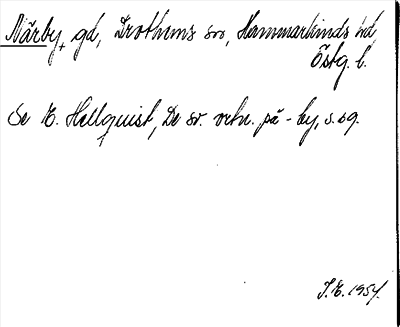 Närby, gd, Drothems sn, Hammarkinds hd,
Östg. l.
Se E. Hellquist, De sv. ortn. på -by, s. 69.
J.E. 1954.